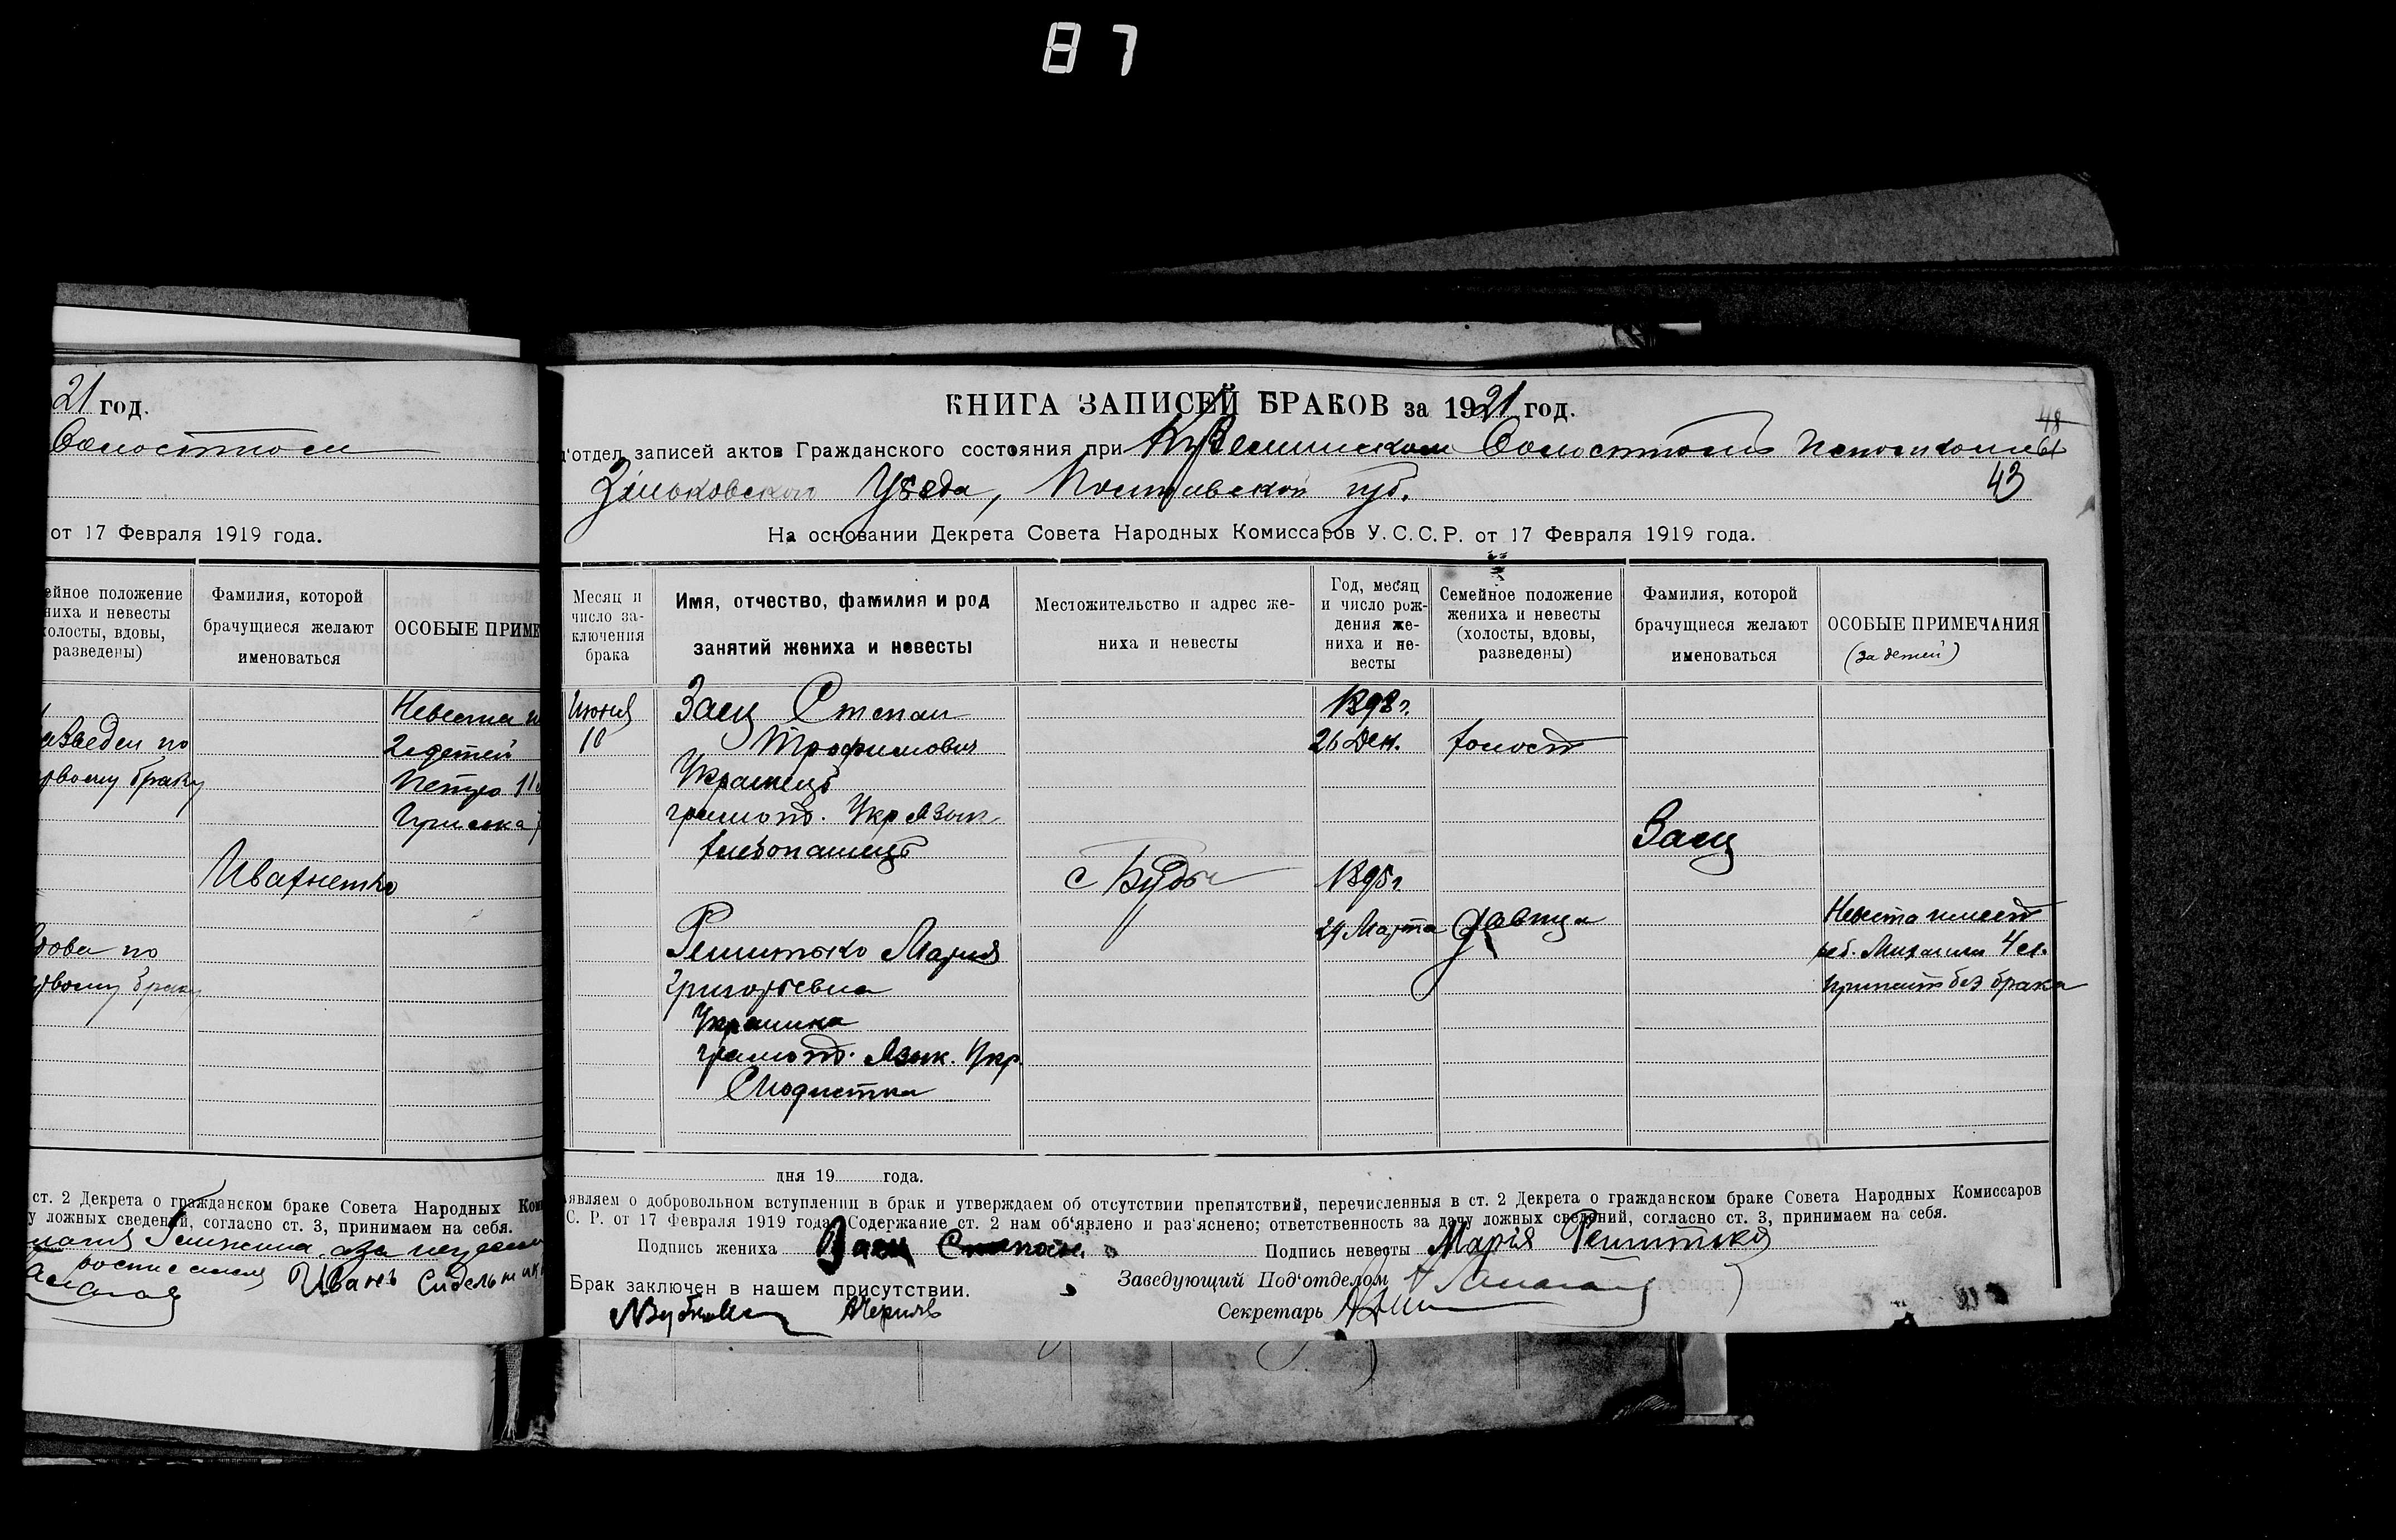 87
21 год.
Волостном
от 17 Февраля 1919 года.
ейное положение
ниха и невесты
холосты, вдовы,
разведены)
Фамилия, которой
брачущиеся желают
именоваться
ОСОБЫЕ ПРИМЕ
Невеста
2 детей
Петро
Гришка
по
рвому браку
Ивахненко
дова по
рвому браку
ст. 2 Декрета о гражданском браке Совета Народных Ком
у ложных сведений, согласно ст. 3, принимаем на себя.
Иванъ Сидельник
КНИГА ЗАПИСЕЙ БРАКОВ за 1921 год.
48
д'отдел записей актов Гражданского состояния при Куземинском Волостном Исполкоме
61
Зіньковского Уѣзда, Полтавской губ.
43
На основании Декрета Совета Народных Комиссаров У.С.С.Р. от 17 Февраля 1919 года.
Месяц и
число за-
ключения
брака
Имя, отчество, фамилия и род
занятий жениха и невесты
Местожительство и адрес же-
ниха и невесты
Год, месяц
и число рож-
дения же-
ниха и не-
весты
Семейное положение
жениха и невесты
(холосты, вдовы,
разведены)
Фамилия, которой
брачущиеся желают
именоваться
ОСОБЫЕ ПРИМЕЧАНИЯ
(за детей)
Июня
10
Заец Степан
Трофимович
Украинецъ
грамотн. Укр Язык
хлебопашецъ
1898 г.
26 Дек.
холост
Заец
с Буды
1895 г.
29 Марта
девица
Решитько Мария
Григорьевна
Украинка
грамотн. Язык. Укр.
Модистка
Невеста имеет
реб. Михаила 4 л.
без брака
дня 19 года.
являем о добровольном вступлении в брак и утверждаем об отсутствии препятствий, перечисленныя в ст. 2 Декрета о гражданском браке Совета Народных Комиссаров
С. Р. от 17 Февраля 1919 года. Содержание ст. 2 нам об'явлено и раз'яснено; ответственность за дачу ложных сведений, согласно ст. 3, принимаем на себя.
Подпись жениха Заец Степан
Подпись невесты Марія Решитько
Брак заключен в нашем присутствии.
Заведующий Под'отделом
Секретарь